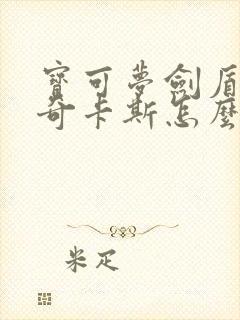 寶可夢劍盾
奇卡斯怎麼
米疋